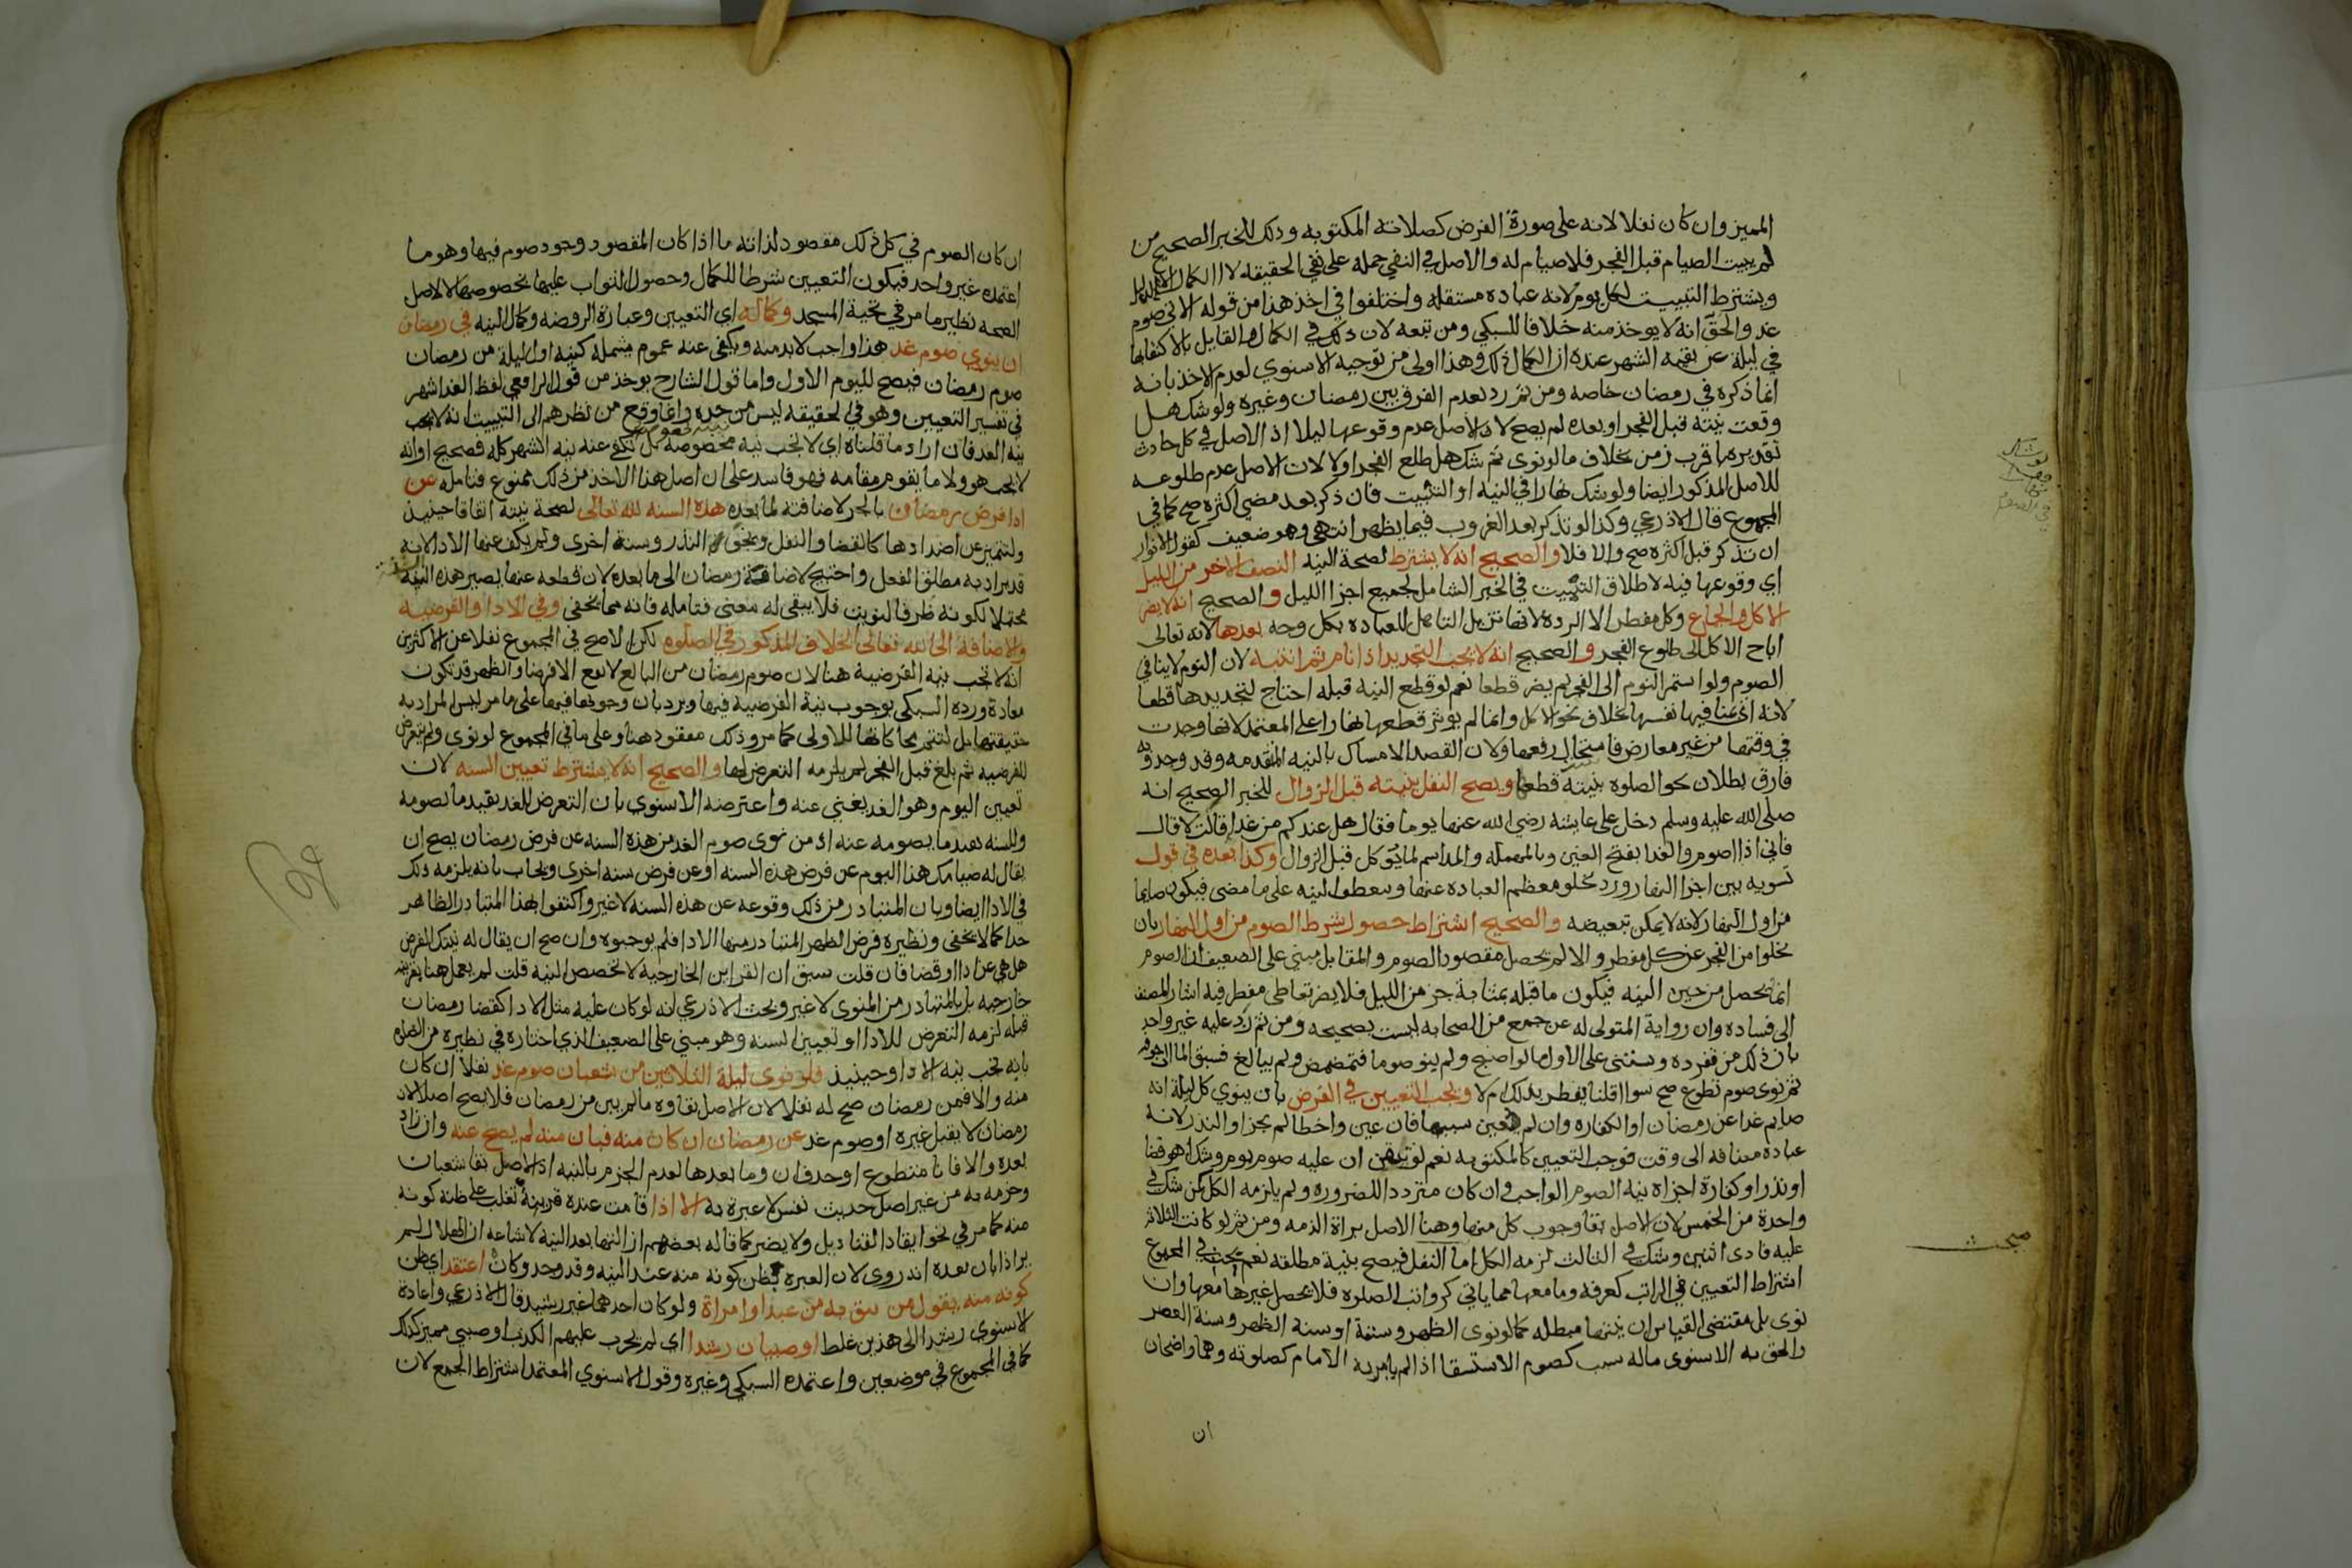 المميز وان كان نفلا لانه على صورة الفرض كصلاته المكتوبه وذلك للخبر الصحيح من
لم يبيت الصيام قبل الفجر فلا صيام له والاصل في النفي حمله على نفي الحقيقه لا الكمال الا لدليل
ويشترط التبييت لكل يوم لانه عباده مستقله واختلفوا في اخذ هذا من قوله الاتي صوم
غد والحق انه لا يوخذ منه خلافا للسبكي ومن تبعه لان ذلك في الكمال والقايل بالاكتفا بها
في ليلة عن بقيه الشهر عنده ان الكمال ذلك وهذا اولى من توجيه الاسنوي لعدم الاخذ بانه
انما ذكره في رمضان خاصه ومن ثم رد بعدم الفرق بين رمضان وغيره ولو شك هل
وقعت نيته قبل الفجر او بعده لم يصح لان الاصل عدم وقوعها ليلا اذ الاصل في كل حادث
تقديره باقرب زمن بخلاف ما لو نوى ثم شك هل طلع الفجر اولا لان الاصل عدم طلوعه
للاصل المذكور ايضا ولو شك نهارا في النيه او التبييت فان ذكر بعد مضي اكثره صح كما في
المجموع قال الاذرعي وكذا لو تذكر بعد الغروب فيما يظهر انتهى وهو ضعيف كقول الانوار
ان تذكر قبل اكثره صح والا فلا والصحيح انه لا يشترط لصحة النيه النصف الاخر من الليل
اي وقوعها فيه لاطلاق التبييت في الخبر الشامل لجميع اجزا الليل والصحيح انه لا يضر
الاكل والجماع وكل مفطر الا الردة لانها تزيل التاهل للعباده بكل وجه بعدها لانه تعالى
اباح الاكل الى طلوع الفجر والصحيح انه لا يجب التجديد اذا نام ثم انتبه لان النوم لا ينافي
الصوم ولو استمر النوم الى الفجر لم يضر قطعا نعم لو قطع النيه قبله احتاج لتجديدها قطعا
لانه اتى بمنافيها نفسها بخلاف نحو الاكل وانما لم يوثر قطعها نهارا على المعتمد لانها وجدت
في وقتها من غير معارض فاستحال رفعها ولان القصد الامساك بالنيه المتقدمه وقد وجد وبه
فارق بطلان نحو الصلوه بنيته قطعها ويصح النفل بنيته قبل الزوال للخبر الصحيح انه
صلى الله عليه وسلم دخل على عايشه رضي الله عنها يوما فقال هل عندكم من غدا قالت لا قال
فاني اذا اصوم والغدا بفتح الغين وبالمهمله والمد اسم لما يوكل قبل الزوال وكذا بعده في قول
تسويه بين اجزا النهار ورد بخلو معظم العباده عنها وتنعطف النيه على ما مضى فيكون صايما
من اول النهار لانه لا يمكن تبعيضه والصحيح اشتراط حصول شرط الصوم من اول النهار بان
يخلوا من الفجر عن كل مفطر والا لم يحصل مقصود الصوم والمقابل مبني على الضعيف ان الصوم
انما يحصل من حين النيه فيكون ما قبله بمثابة جز من الليل فلا يضر تعاطي مفطر فيه اشار المصنف
الى فساده وان رواية المتولي له عن جمع من الصحابه ليست بصحيحه ومن ثم رد عليه غير واحد
بان ذلك من تفرده ويستثنى على الاول ما لو اصبح ولم ينو صوما فتمضمض ولم يبالغ فسبق الما الى جوفه
ثم نوى صوم تطوع صح سوا اقلنا يفطر بذلك ام لا ويجب التعيين في الفرض بان ينوي كل ليلة انه
صايم غدا عن رمضان او الكفاره وان لم يعين سببها فان عين واخطا لم يجز او النذر لانه
عباده مضافه الى وقت فوجب التعيين كالمكتوبه نعم لو تيقن ان عليه صوم يوم وشك اهو قضا
او نذر او كفارة اجزاه نيه الصوم الواجب وان كان مترددا للضروره ولم يلزمه الكل كمن شك في
واحدة من الخمس لان الاصل بقا وجوب كل منها وهنا الاصل براة الذمه ومن ثم لو كانت الثلاثه
عليه فادى اثنين وشك في الثالث لزمه الكل اما النفل فيصح بنية مطلقه نعم بحث في المجموع
اشتراط التعيين في الراتب كعرفه وما معها مما ياتي كرواتب الصلوه فلا يحصل غيرها معها وان
نوى بل مقتضى القياس ان نيتها مبطله كما لو نوى الظهر وسنته او سنة الظهر وسنة العصر
والحق به الاسنوي ماله سبب كصوم الاستسقا اذا لم يامر به الامام كصلوته وهما واضحان
ان
مبحث
ان كان الصوم في كل ذلك مقصود لذاته ما اذا كان المقصود وجود صوم فيها وهو ما
اعتمده غير واحد فيكون التعيين شرطا للكمال وحصول الثواب عليها بخصوصها لا لاصل
الصحه نظير ما مر في تحية المسجد وكماله اي التعيين وعبارة الروضه وكمال النيه في رمضان
ان ينوي صوم غد هذا واجب لا بد منه ويكفي عنه عموم يشمله كنيه اول ليلة من رمضان
صوم رمضان فيصح لليوم الاول واما قول الشارح يوخذ من قول الرافعي لفظ الغد اشهر
في تفسير التعيين وهو في الحقيقه ليس من حده وانما وقع من نظرهم الى التبييت انه لا يجب
نيه الغد فان اراد ما قلناه اي لا تجب نيه مخصوصه بل تكفي عنه نيه الشهر كله فصحيح او انه
لا يجب هو ولا ما يقوم مقامه فهو فاسد على ان اصل هذا الاخذ من ذلك ممنوع فتامله عن
ادا فرض رمضان بالجر لاضافته لما بعده هذه السنه لله تعالى لصحة نيته اتفاقا حينيذ
ولتتميز عن اضدادها كالقضا والنفل ونحو النذر وسنة اخرى ولم يكف عنها الادا لانه
قد يراد به مطلق الفعل واحتيج لاضافة رمضان الى ما بعده لان قطعه عنها يصير هذه السنه
محتملا لكونه ظرفا لنويت فلا يبقى له معنى فتامله فانه مما يخفى وفي الادا والفرضيه
والاضافة الى الله تعالى الخلاف المذكور في الصلوه لكن الاصح في المجموع نقلا عن الاكثرين
انه لا تجب نيه الفرضيه هنا لان صوم رمضان من البالغ لا يقع الا فرضا والظهر قد تكون
معادة ورده السبكي بوجوب نية الفرضيه فيها ويرد بان وجوبها فيها على ما مر ليس المراد به
حقيقتها بل لتتم محاكاتها للاولى كما مر وذلك مفقود هنا وعلى ما في المجموع لو نوى ولم يتعرض
للفرضيه ثم بلغ قبل الفجر لم يلزمه التعرض لها والصحيح انه لا يشترط تعيين السنه لان
تعيين اليوم وهو الغد يغني عنه واعترضه الاسنوي بان التعرض للغد يفيد ما يصومه
وللسنه يفيد ما يصومه عنه اذ من نوى صوم الغد من هذه السنه عن فرض رمضان يصح ان
يقال له صيامك هذا اليوم عن فرض هذه السنه او عن فرض سنه اخرى ويجاب بانه يلزمه ذلك
في الادا ايضا وبان المتبادر من ذلك وقوعه عن هذه السنه لا غير واكتفوا بهذا المتبادر الظاهر
جدا كما لا يخفى ونظيره فرض الظهر المتبادر منها الادا فلم يوجبوه وان صح ان يقال له نيتك الفرض
هل هي عن ادا او قضا فان قلت سبق ان القراين الخارجيه لا تخصص النيه قلت لم يعمل هنا بقرينه
خارجيه بل بالمتبادر من المنوي لا غير وبحث الاذرعي انه لو كان عليه مثل الادا كقضا رمضان
قبله لزمه التعرض للادا او تعيين السنه وهو مبني على الضعيف الذي اختاره في نظيره من الصلوه
بانه تجب نيه الادا وحينيذ فلو نوى ليلة الثلاثين من شعبان صوم غد نفلا ان كان
منه والا فمن رمضان صح له نفلا لان الاصل بقاوه ما لم يبن من رمضان فلا يصح اصلا لان
رمضان لا يقبل غيره او صوم غد عن رمضان ان كان منه فبان منه لم يصح عنه وان زاد
بعده والا فانا متطوع او حذف ان وما بعدها لعدم الجزم بالنيه اذ الاصل بقا شعبان
وجزمه به من غير اصل حديث نفس لا عبرة به الا اذا قامت عنده قرينة تغلب على ظنه كونه
منه كما مر في نحو ايقاد القناديل ولا يضر كما قاله بعضهم ازالتها بعد النية لاشاعه ان الهلال لم
ير اذا بان بعده انه روي لان العبره بظن كونه منه عند النيه وقد وجد وكان اعتقد اي ظن
كونه منه بقول من يثق به من عبد او امراة ولو كان احدهما غير رشيد قال الاذرعي واعادة
الاسنوي رشدا الى هذين غلط او صبيان رشدا اي لم يجرب عليهم الكذب او صبي مميز كذلك
كما في المجموع في موضعين واعتمده السبكي وغيره وقول الاسنوي المعتمد اشتراط الجمع لان